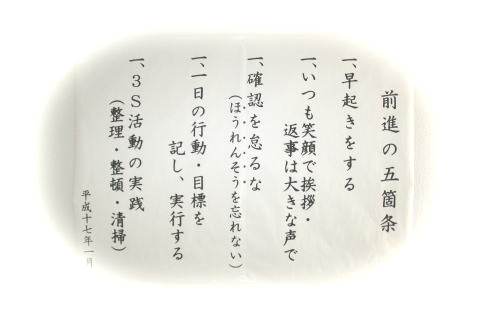 前進の五箇条
一、早起きをする
一、いつも笑顔で挨拶・
返事は大きな声で
一、確認を怠るな
（ほうれんそうを忘れない）
一、一日の行動・目標を
記し、実行する
一、３Ｓ活動の実践
（整理・整頓・清掃）
平成十七年一月